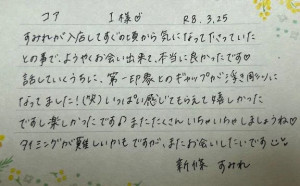 コア I様♡ R8.3.25
すみれが入店してすぐの頃から気になって下さっていた
との事で、ようやくお会い出来て、本当に良かったです♡
話していくうちに、第一印象とのギャップが浮き彫りに
なってました！(笑) いっぱい感じてもらえて嬉しかった
ですし楽しかったです♪またたくさんいちゃいちゃしましょうね♡
タイミングが難しいかもですが、またお会いしたいです
新條 すみれ